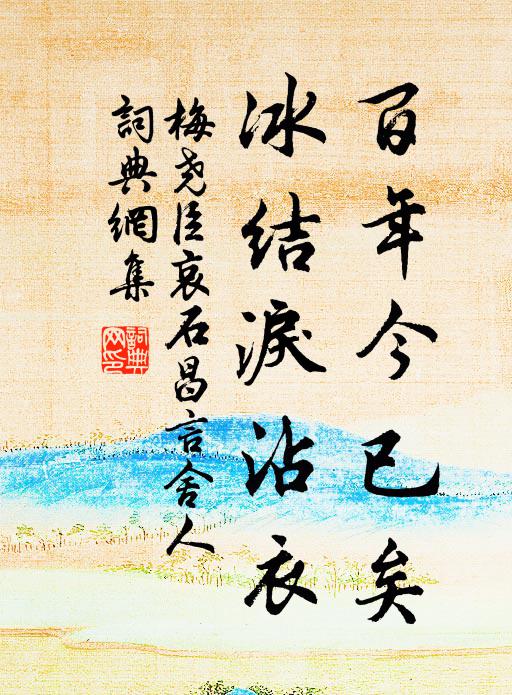 百年今已矣
冰結淚沾衣
梅堯臣哀石昌言舍人
詞典網集
詞典
网印